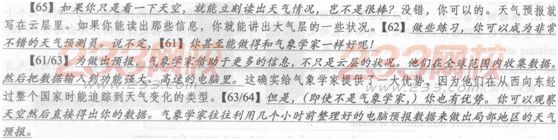 【65】如果你只是看一下天空，就能立刻读出天气情况，岂不是很棒？没错，你可以的。天气预报就
写在云层里。如果你能读出那些信息，你就能讲出大气层的一些状况。【62】做些练习，你可以成为非常
不错的天气预测员。说不定，【61】你甚至能做得和气象学家一样好呢！
【61/63】为做出预报，气象学家借助于更多的信息，不只是云层的状况。他们在全球范围内收集数据。
然后把数据输入到功能强大、高速的电脑里。这确实给气象学家提供了一大优势，因为他们在从西向东经
过整个国家时能追踪到天气变化的类型。【63/64】但是，（即使不是气象学家，）你也有优势。你可以观察
天空然后直接得出你的数据。气象学家往往利用几个小时前整理好的电脑预报数据来做出局部地区的天气
预报。